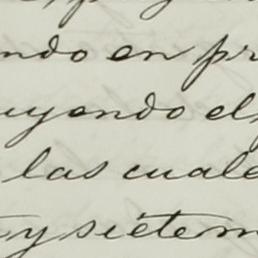 ndo en pr
uyendo el
las cuale
y siétem